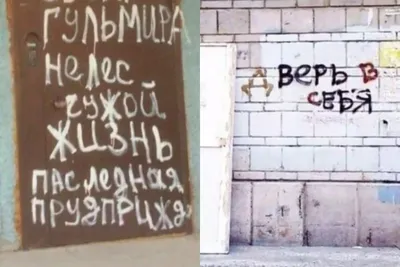 ГУЛЬМИРА
НЕ ЛЕС
ЧУЖОЙ
ЖИЗНЬ
ПАСЛЕДНАЯ
ПРУДПРИЖД
Д ВЕРЬ В
СЕБЯ